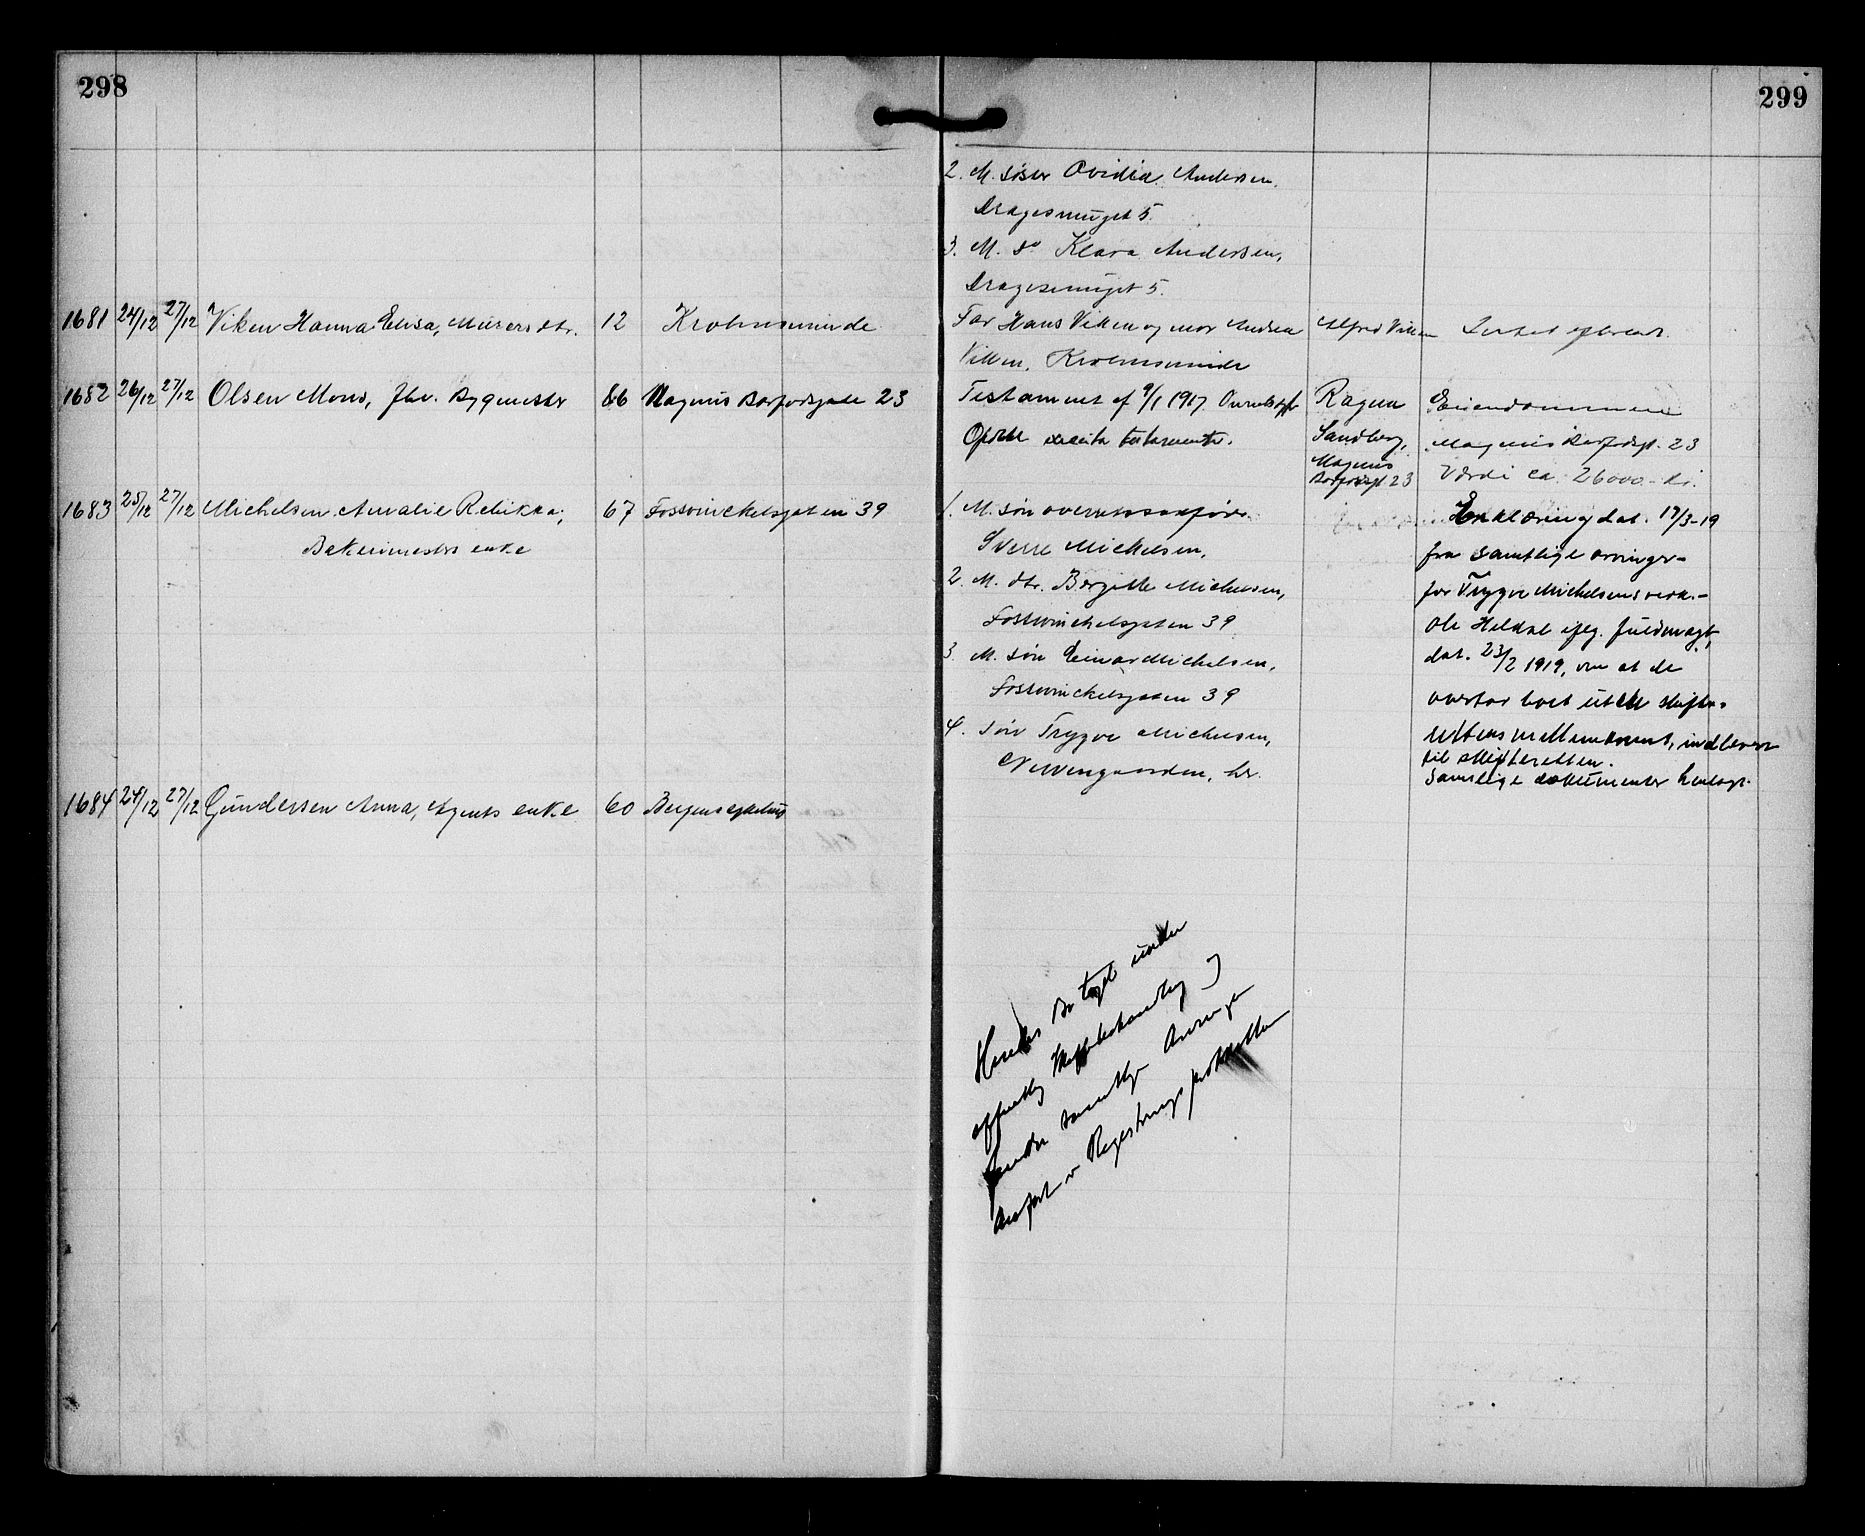 298
299
2. M. søster Ovidia Andersen,
Dragesmuget 5.
3. M. do Klara Andersen,
Dragesmuget 5.
1681 24/12 27/12 Viken Hanna Elisa, Murers dtr. 12 Krohnsminde
Far Hans Viken og mor Andrea
Viken, Krohnsminde
Alfred Viken
Intet efterladt.
1682 26/12 27/12 Olsen Mons, fhv. Bygmester 86 Magnus Barfodsgate 23
Testament af 9/1 1917.
testamente.
Ragna
Sandberg,
Magnus
Barfodsgt 23
Eiendommen
Magnus Barfodsgt. 23
Værdi ca. 26000 kr.
1683 25/12 27/12 Michelsen Amalie Rebikka, 67 Fosswinckelsgaten 39
Bakermesters enke
1. M. søn overretssakfører
Sverre Michelsen,
2. M. dtr. Bergitte Michelsen,
Fosswinckelsgaten 39
3. M. søn Einar Michelsen,
Fosswinckelsgaten 39
4. søn Trygve Michelsen,
her.
Erklæring dat. 17/3-19
fra samtlige arvinger -
for Trygve Michelsens
Ole Heldal ifølg. fuldmagt,
dat. 23/2 1919, om at de
overtar boet uten skifte-
rettens mellemkomst, indlevert
til skifteretten.
Samtlige dokumenter henlagt.
1684 24/12 27/12 Gundersen Anna, Agents enke 60 Bergens sykehus
Hendes Bo taget under
offentlig Skiftebehandling
samtlige Arvinger
anført i Registreringsprotokollen